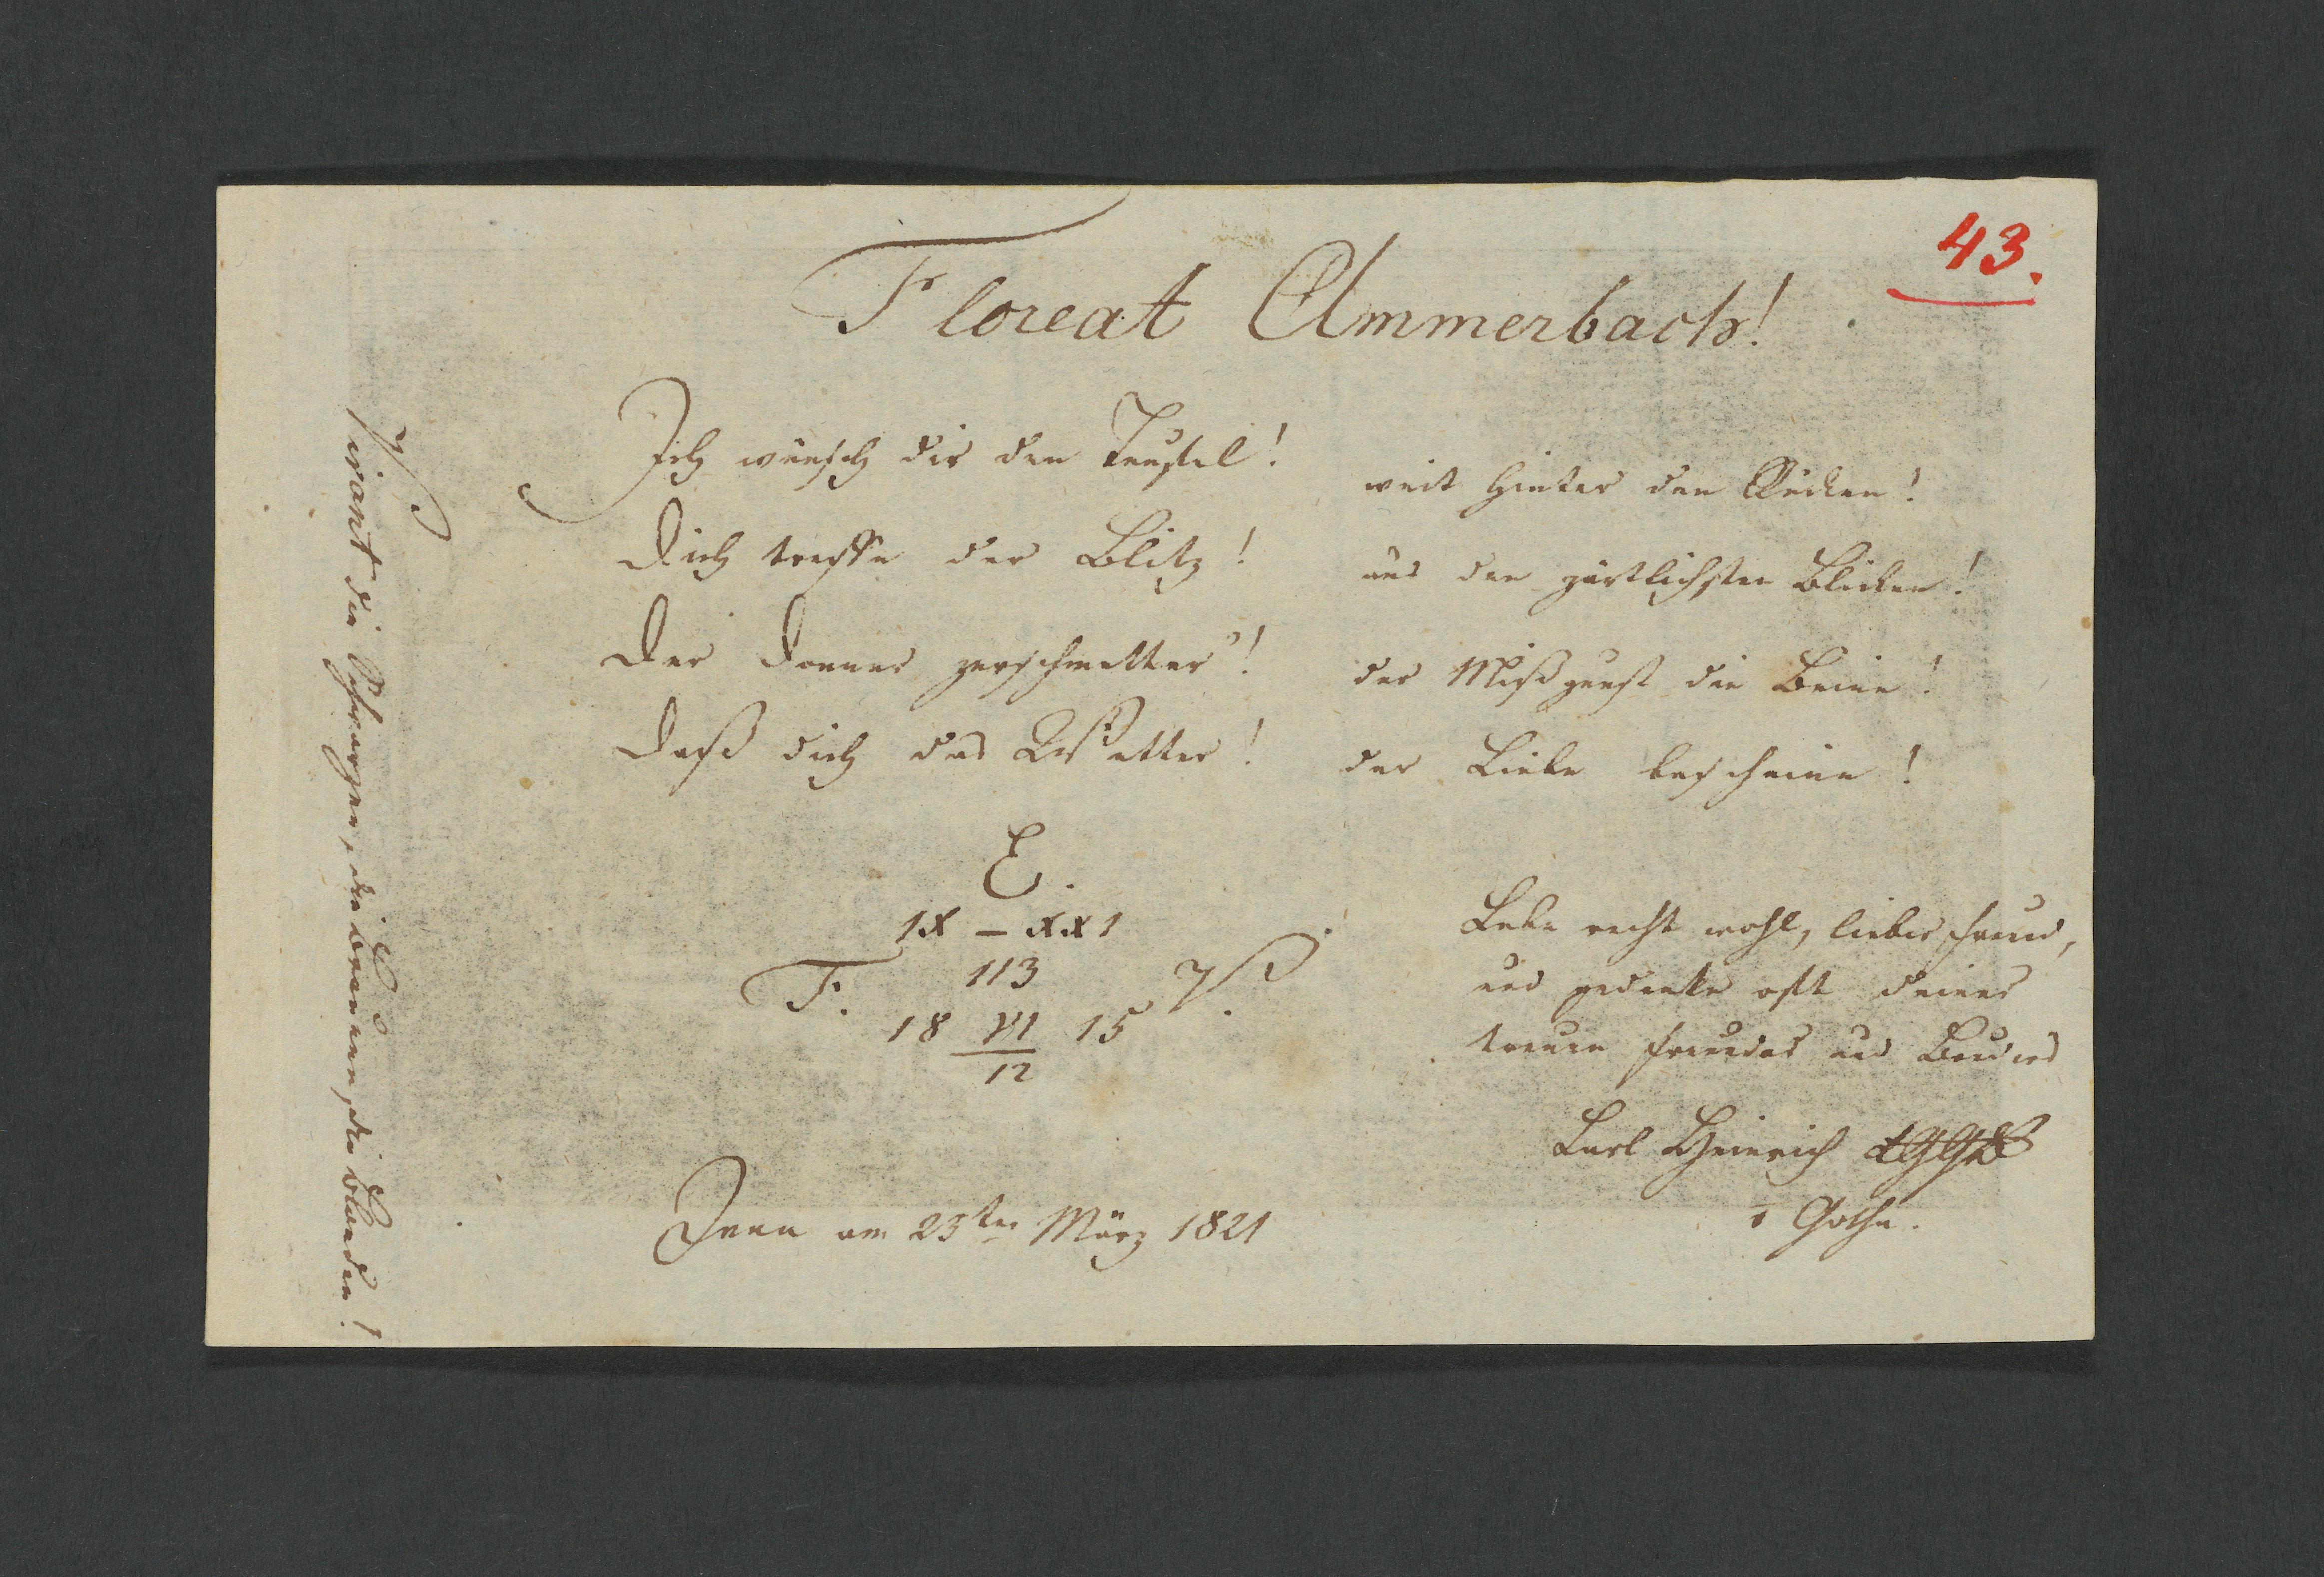 43.
Floreat Ammerbach!
Ich wünsch dir den Teufel! weit hinter den Rücken!
Dich treffe der Blitz! aus den zärtlichsten Blicken!
Der Donner zerschmetter'! der Mißgunst die Beine!
Daß dich das Wetter! der Liebe bescheine!
E.
IX – XXI
113
F. V.
18 VI 15
12
Lebe recht wohl, lieber Freund,
und gedenke oft deines
treuen Freundes und Bruders
Carl Heinrich
Gotha.
Jena am 23ten März 1821
Vivant die Schwarzen, die Braunen, die Blonden!